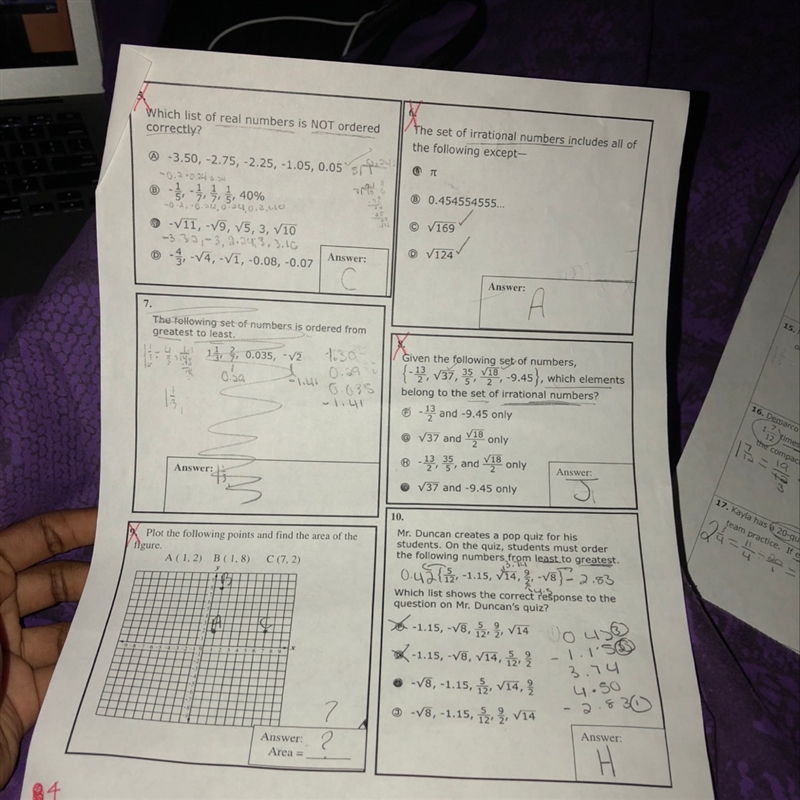 5.
Which list of real numbers is NOT ordered
correctly?
Ⓐ -3.50, -2.75, -2.25, -1.05, 0.05
Ⓑ -1/5, -1/7, 1/7, 1/5, 40%
-√11, -√9, √5, 3, √10
-3.32, -3, 2.24, 3, 3.16
Ⓓ -4/3, -√4, -√1, -0.08, -0.07
Answer:
C
6.
The set of irrational numbers includes all of
the following except—
π
Ⓑ 0.454554555...
Ⓒ √169
Ⓓ √124
Answer:
A
7.
The following set of numbers is ordered from
greatest to least.
1 1/3, 2/7, 0.035, -√2
0.29
-1.41
1.30
0.29
0.035
-1.41
1 1/3
Answer:
1 1/3
8.
Given the following set of numbers,
{-13/2, √37, 35/5, √18/2, -9.45}, which elements
belong to the set of irrational numbers?
Ⓕ -13/2 and -9.45 only
Ⓖ √37 and √18/2 only
Ⓗ -13/2, 35/5, and √18/2 only
√37 and -9.45 only
Answer:
J
9.
Plot the following points and find the area of the
figure.
A ( 1, 2) B ( 1, 8) C (7, 2)
y
B
A
C
x
?
Answer:
Area = ?
10.
Mr. Duncan creates a pop quiz for his
students. On the quiz, students must order
the following numbers from least to greatest.
3.74
0.42 {5/12, -1.15, √14, 9/2, -√8} -2.83
4.5
Which list shows the correct response to the
question on Mr. Duncan's quiz?
-1.15, -√8, 5/12, 9/2, √14
-1.15, -√8, √14, 5/12, 9/2
-√8, -1.15, 5/12, √14, 9/2
Ⓙ -√8, -1.15, 5/12, 9/2, √14
0.42
-1.15
3.74
4.50
-2.83
Answer:
H
4
15.
16. Demarco
1 7/12 times
the compac
1 7/12 = 19
17. Kayla has a 20-qu
team practice. If
2 3/4 = 11/4